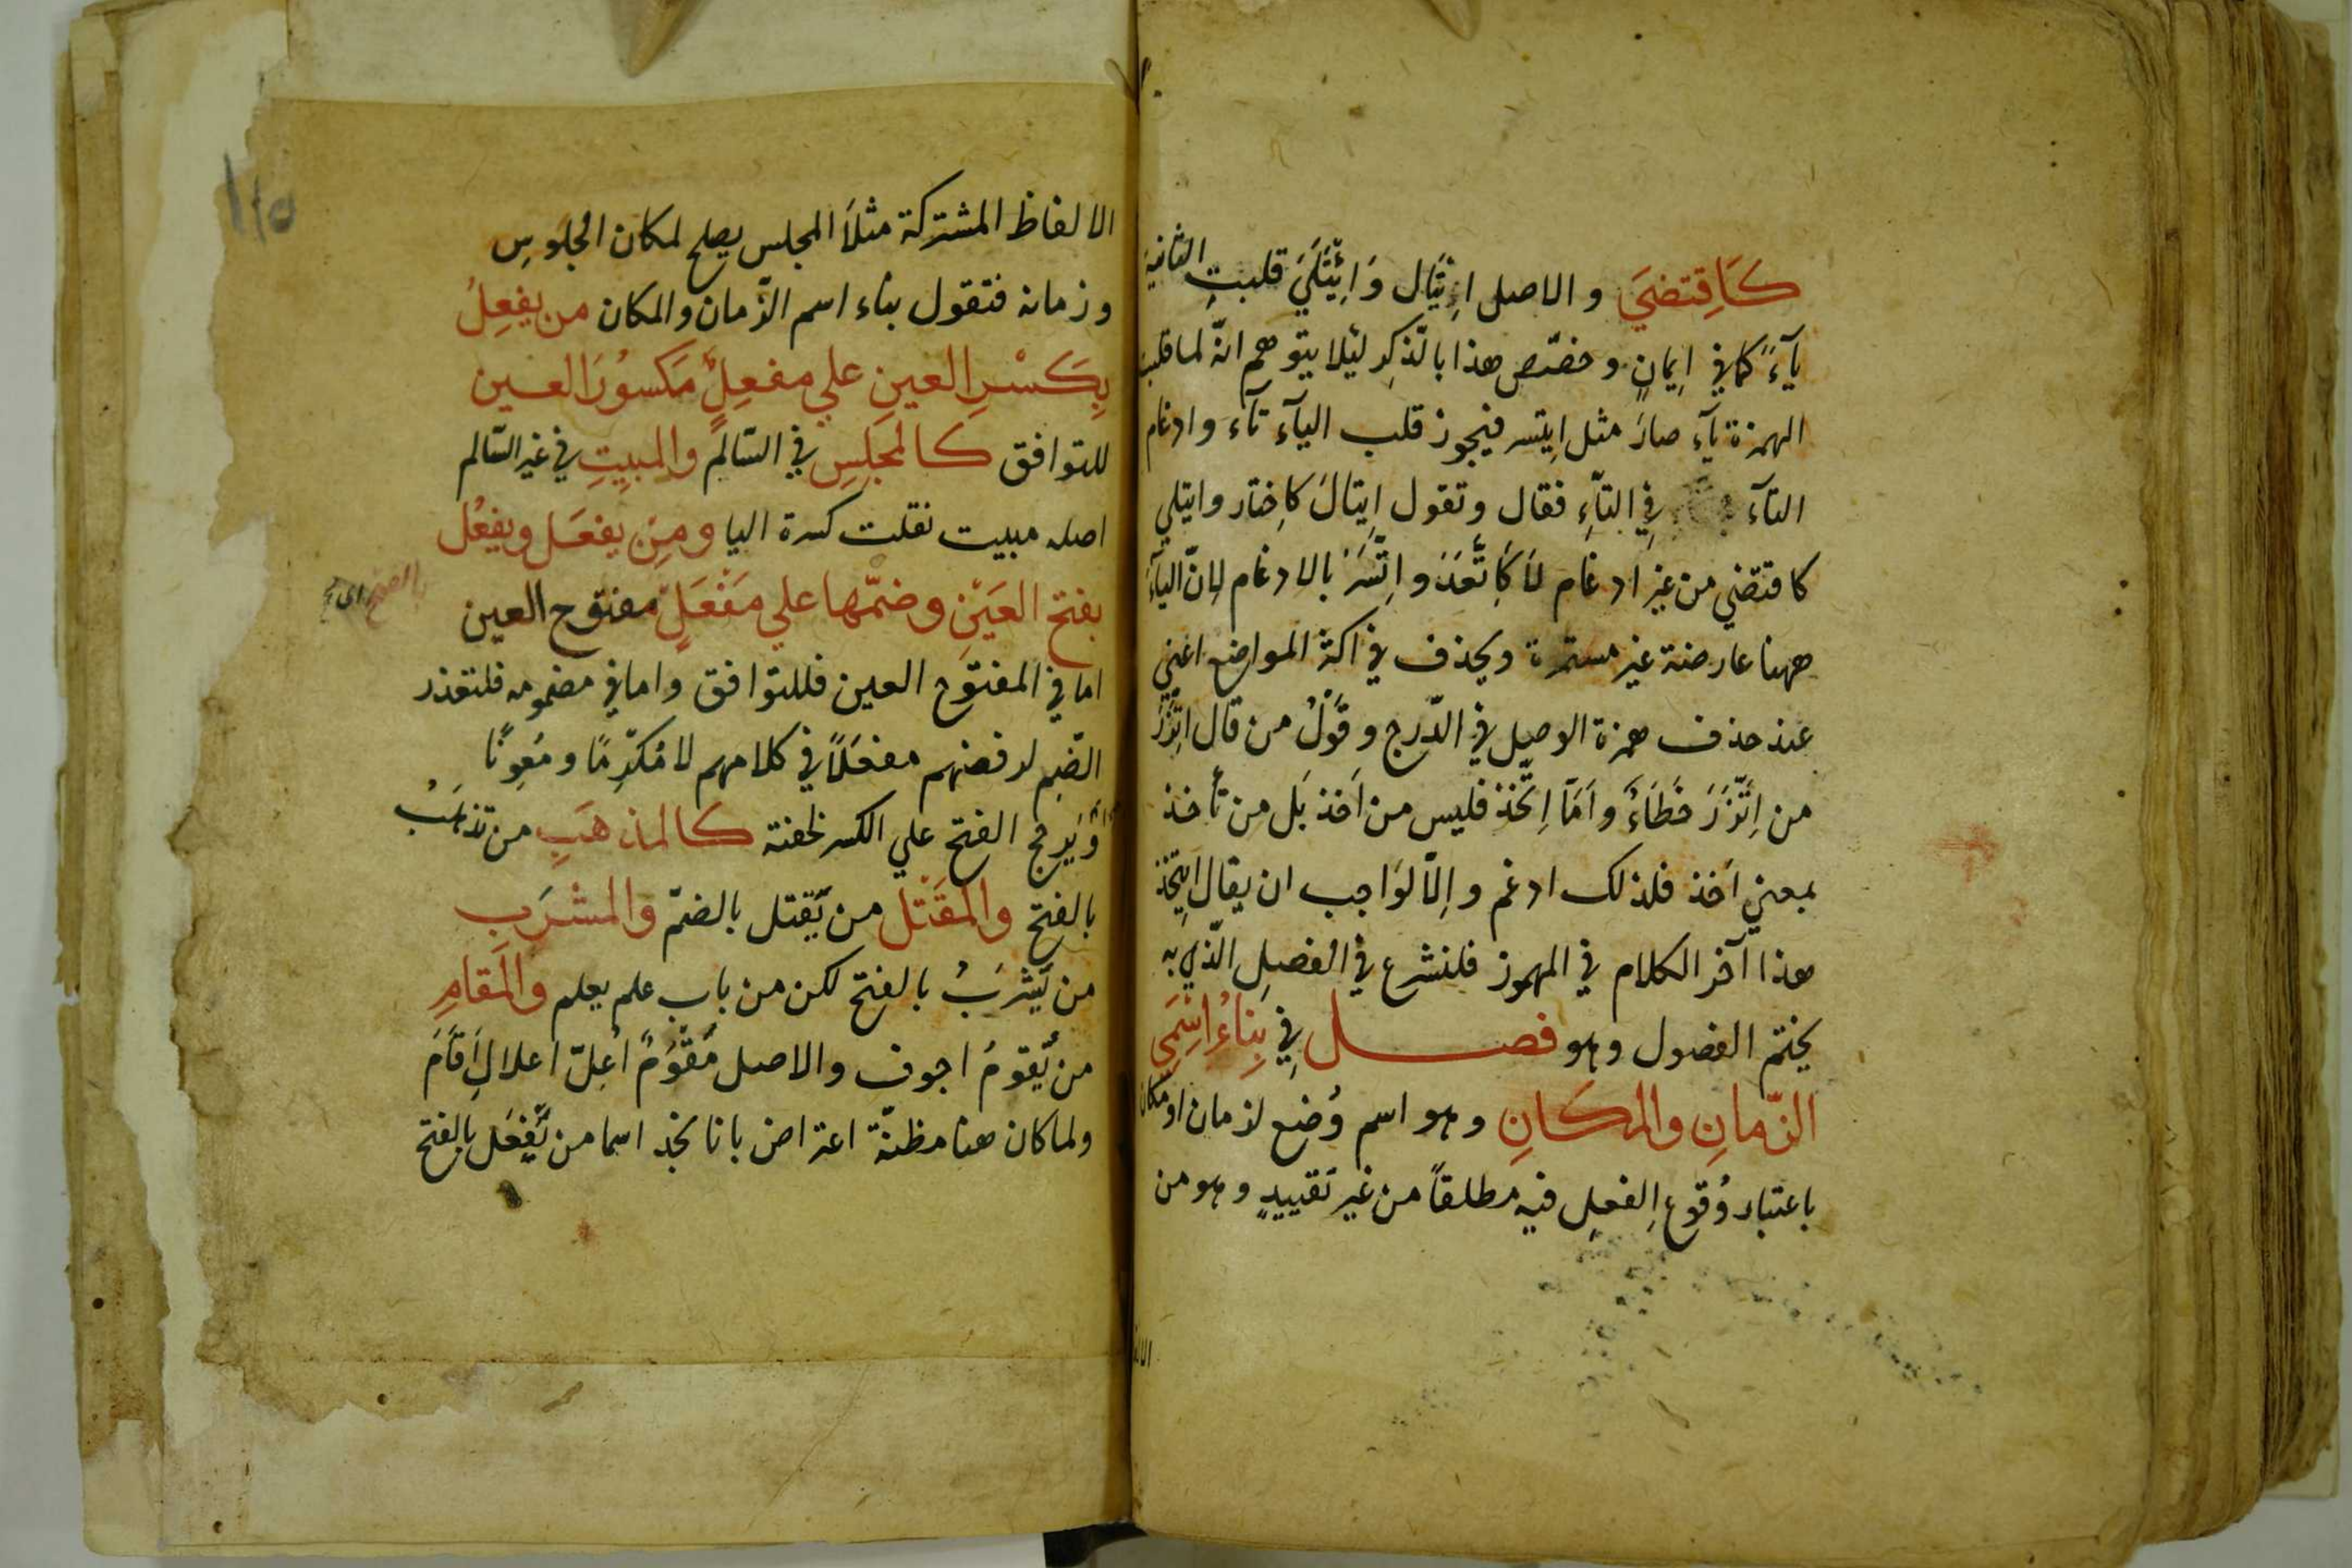 كَاقِتضَيَ و الاصل اِئتِيَال وَ اِئتَلَيَ قلبتِ الثانية
يآءً كما في اِيمانٍ و خصّص هذا بالذّكِر لئلا يتوهم انّه لما قلبت
الهمزة يآء صارَ مثل اِيتسر فيجوز قلب اليآء تآء و ادغام
التآء في التآءِ فقال وتقول اِيتالَ كاِختار وايتلي
كاقتضي من غير ادغام لَا كَاتَّعَدَ و اِتَّسَرَ بالادغام لِانّ اليآءَ
ههنا عارضة غير مستمرة ويحذف في اكثر المواضع اعني
عند حذف همزة الوصل في الدّرج و قَوْلُ من قال اتَّزَرَ
من اِتَّزَرَ خَطَاءٌ و اَمّا اِتَّخَذ فليس من اَخَذ بَل من تأخذ
بمعني اَخذ فلذلك ادغم و اِلّا لوَاجب ان يقال اِيتَخَذ
هذا آخر الكلام في المهموز فلنشرع في الفصلِ الّذي به
يختتم الفصول وهو فصــل فِي بِنَاءِ اسْمَيِ
الزّمانِ والمكَانِ وهو اسم وُضِع لزمان او مكان
باعتبار وُقوعِ الفعلِ فيه مطلقاً من غير تَقييدٍ وهو من
الالفاظ المشتركة مثلاً المجلس يصلح لمكان الجلوسِ
و زمانه فتقول بناء اسم الزّمان والمكان من يفعِلُ
بِكَسْرِ العينِ علي مفعِلٍ مَكسُورَ العين
للتوافق كالمجلِسِ في السّالم والمبيِتِ في غير السّالم
اصله مبيت نقلت كسرة اليا ومِن يفعَل ويفعُل
بفتح العَيْنِ وضمّها علي مَفْعَلٍ مفتوح العين
اما في المفتوح العين فللتوافق واما في مضمومه فلتعذر
الضّم لرفضهم مفعُلاً في كلامهم الا مَكرُمًا و مَعُونًا
وَيُرجّح الفتح علي الكسر لخفته كالمذهَبِ من يَذهَبُ
بالفتح والمقَتْل من يَقتل بالضمّ والمشرَبِ
من يَشْرَبُ بالفتح لكن من باب علم يعلم والمَقامِ
من يَقومُ اجوف والاصل مَقْوَمٌ اُعِلّ اعلال اَقَامَ
ولما كان هنا مظنّة اعتراض بانا نجد اسما من يَفعَل بالفتح